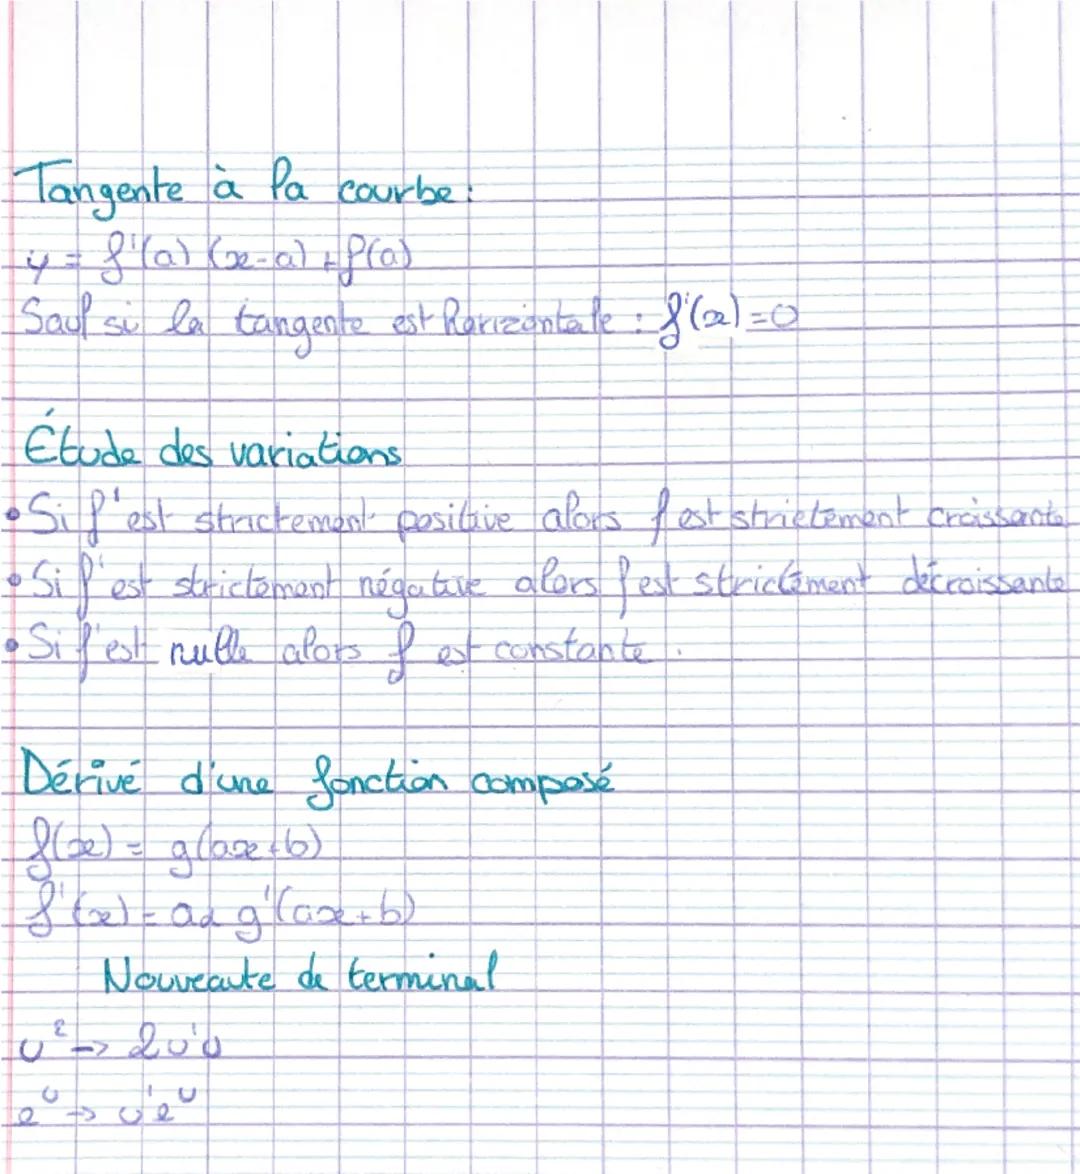 Tangente à la courbe :
y = f'(a) (x-a) + f(a)
Sauf si la tangente est horizontale : f'(x) = 0
Étude des variations
• Si f' est strictement positive alors f est strictement croissante
• Si f' est strictement négative alors f est strictement décroissante
• Si f' est nulle alors f est constante.
Dérivé d'une fonction composé
f(x) = g(ax+b)
f'(x) = a x g'(ax+b)
Nouveaute de terminal
u² -> 2u'u
e^u -> u'e^u